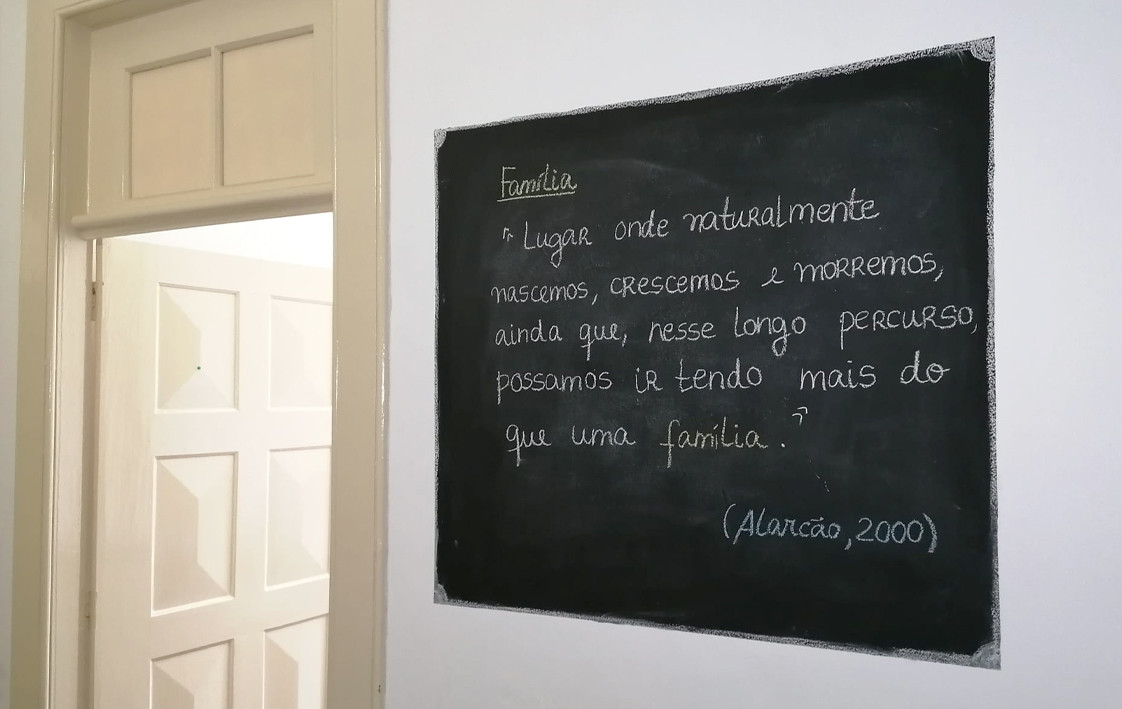 Família
"Lugar onde naturalmente
nascemos, crescemos e morremos,
ainda que, nesse longo percurso,
possamos ir tendo mais do
que uma família."
(Alarcão, 2000)